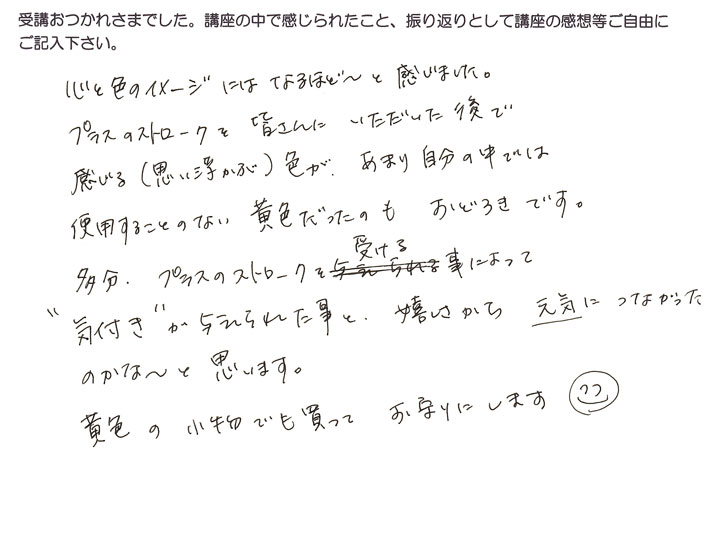 受講おつかれさまでした。講座の中で感じられたこと、振り返りとして講座の感想等ご自由に
ご記入下さい。
心と色のイメージにはなるほど〜と感じました。
プラスのストロークを皆さんにいただいた後で
感じる(思い浮かぶ)色が、あまり自分の中では
使用することのない黄色だったのもおどろきです。
多分、プラスのストロークを受ける事によって
"気付き"が与えられた事と、嬉しさから元気につながった
のかな〜と思います。
黄色の小物でも買ってお守りにします